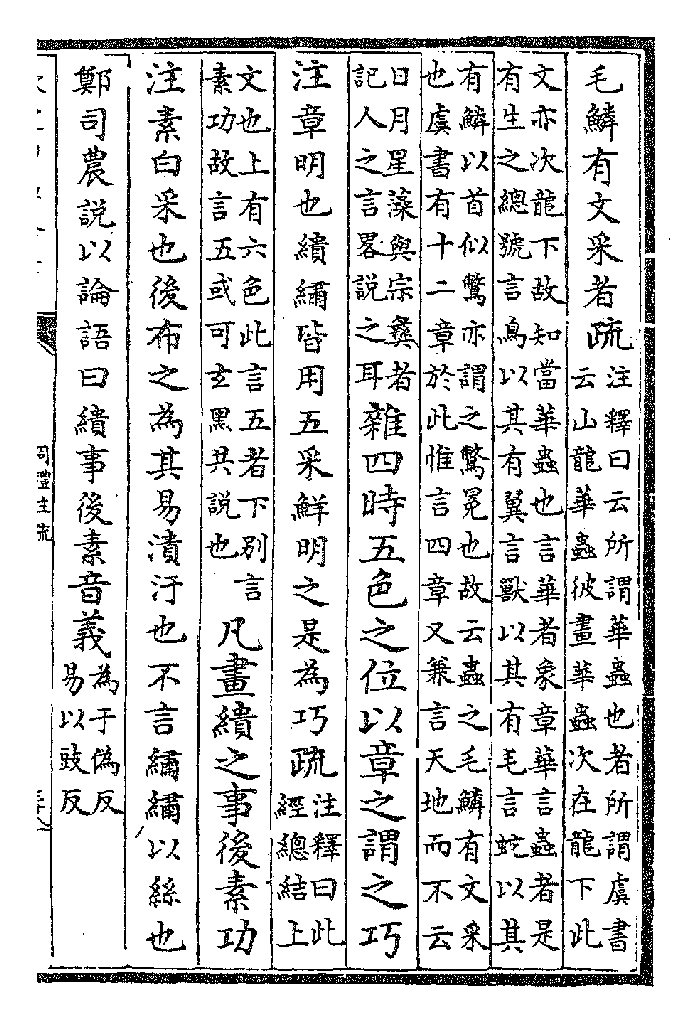 毛鱗有文采者疏
注釋曰云所謂華蟲也者所謂虞書
云山龍華蟲彼畫華蟲次在龍下此
文亦次龍下故知當華蟲也言華者象章華言蟲者是
有生之總號言鳥以其有翼言獸以其有毛言蛇以其
有鱗以首似鷩亦謂之鷩冕也故云蟲之毛鱗有文采
也虞書有十二章於此惟言四章又兼言天地而不云
日月星藻與宗彝者
記人之言畧說之耳
雜四時五色之位以章之謂之巧
注章明也繢繡皆用五采鮮明之是為巧疏
注釋曰此
經總結上
文也上有六色此言五者下別言
素功故言五或可玄黑共說也
凡畫繢之事後素功
注素白采也後布之為其易漬汙也不言繡繡以絲也
鄭司農說以論語曰繢事後素音義
為于偽反
易以豉反
周禮注疏